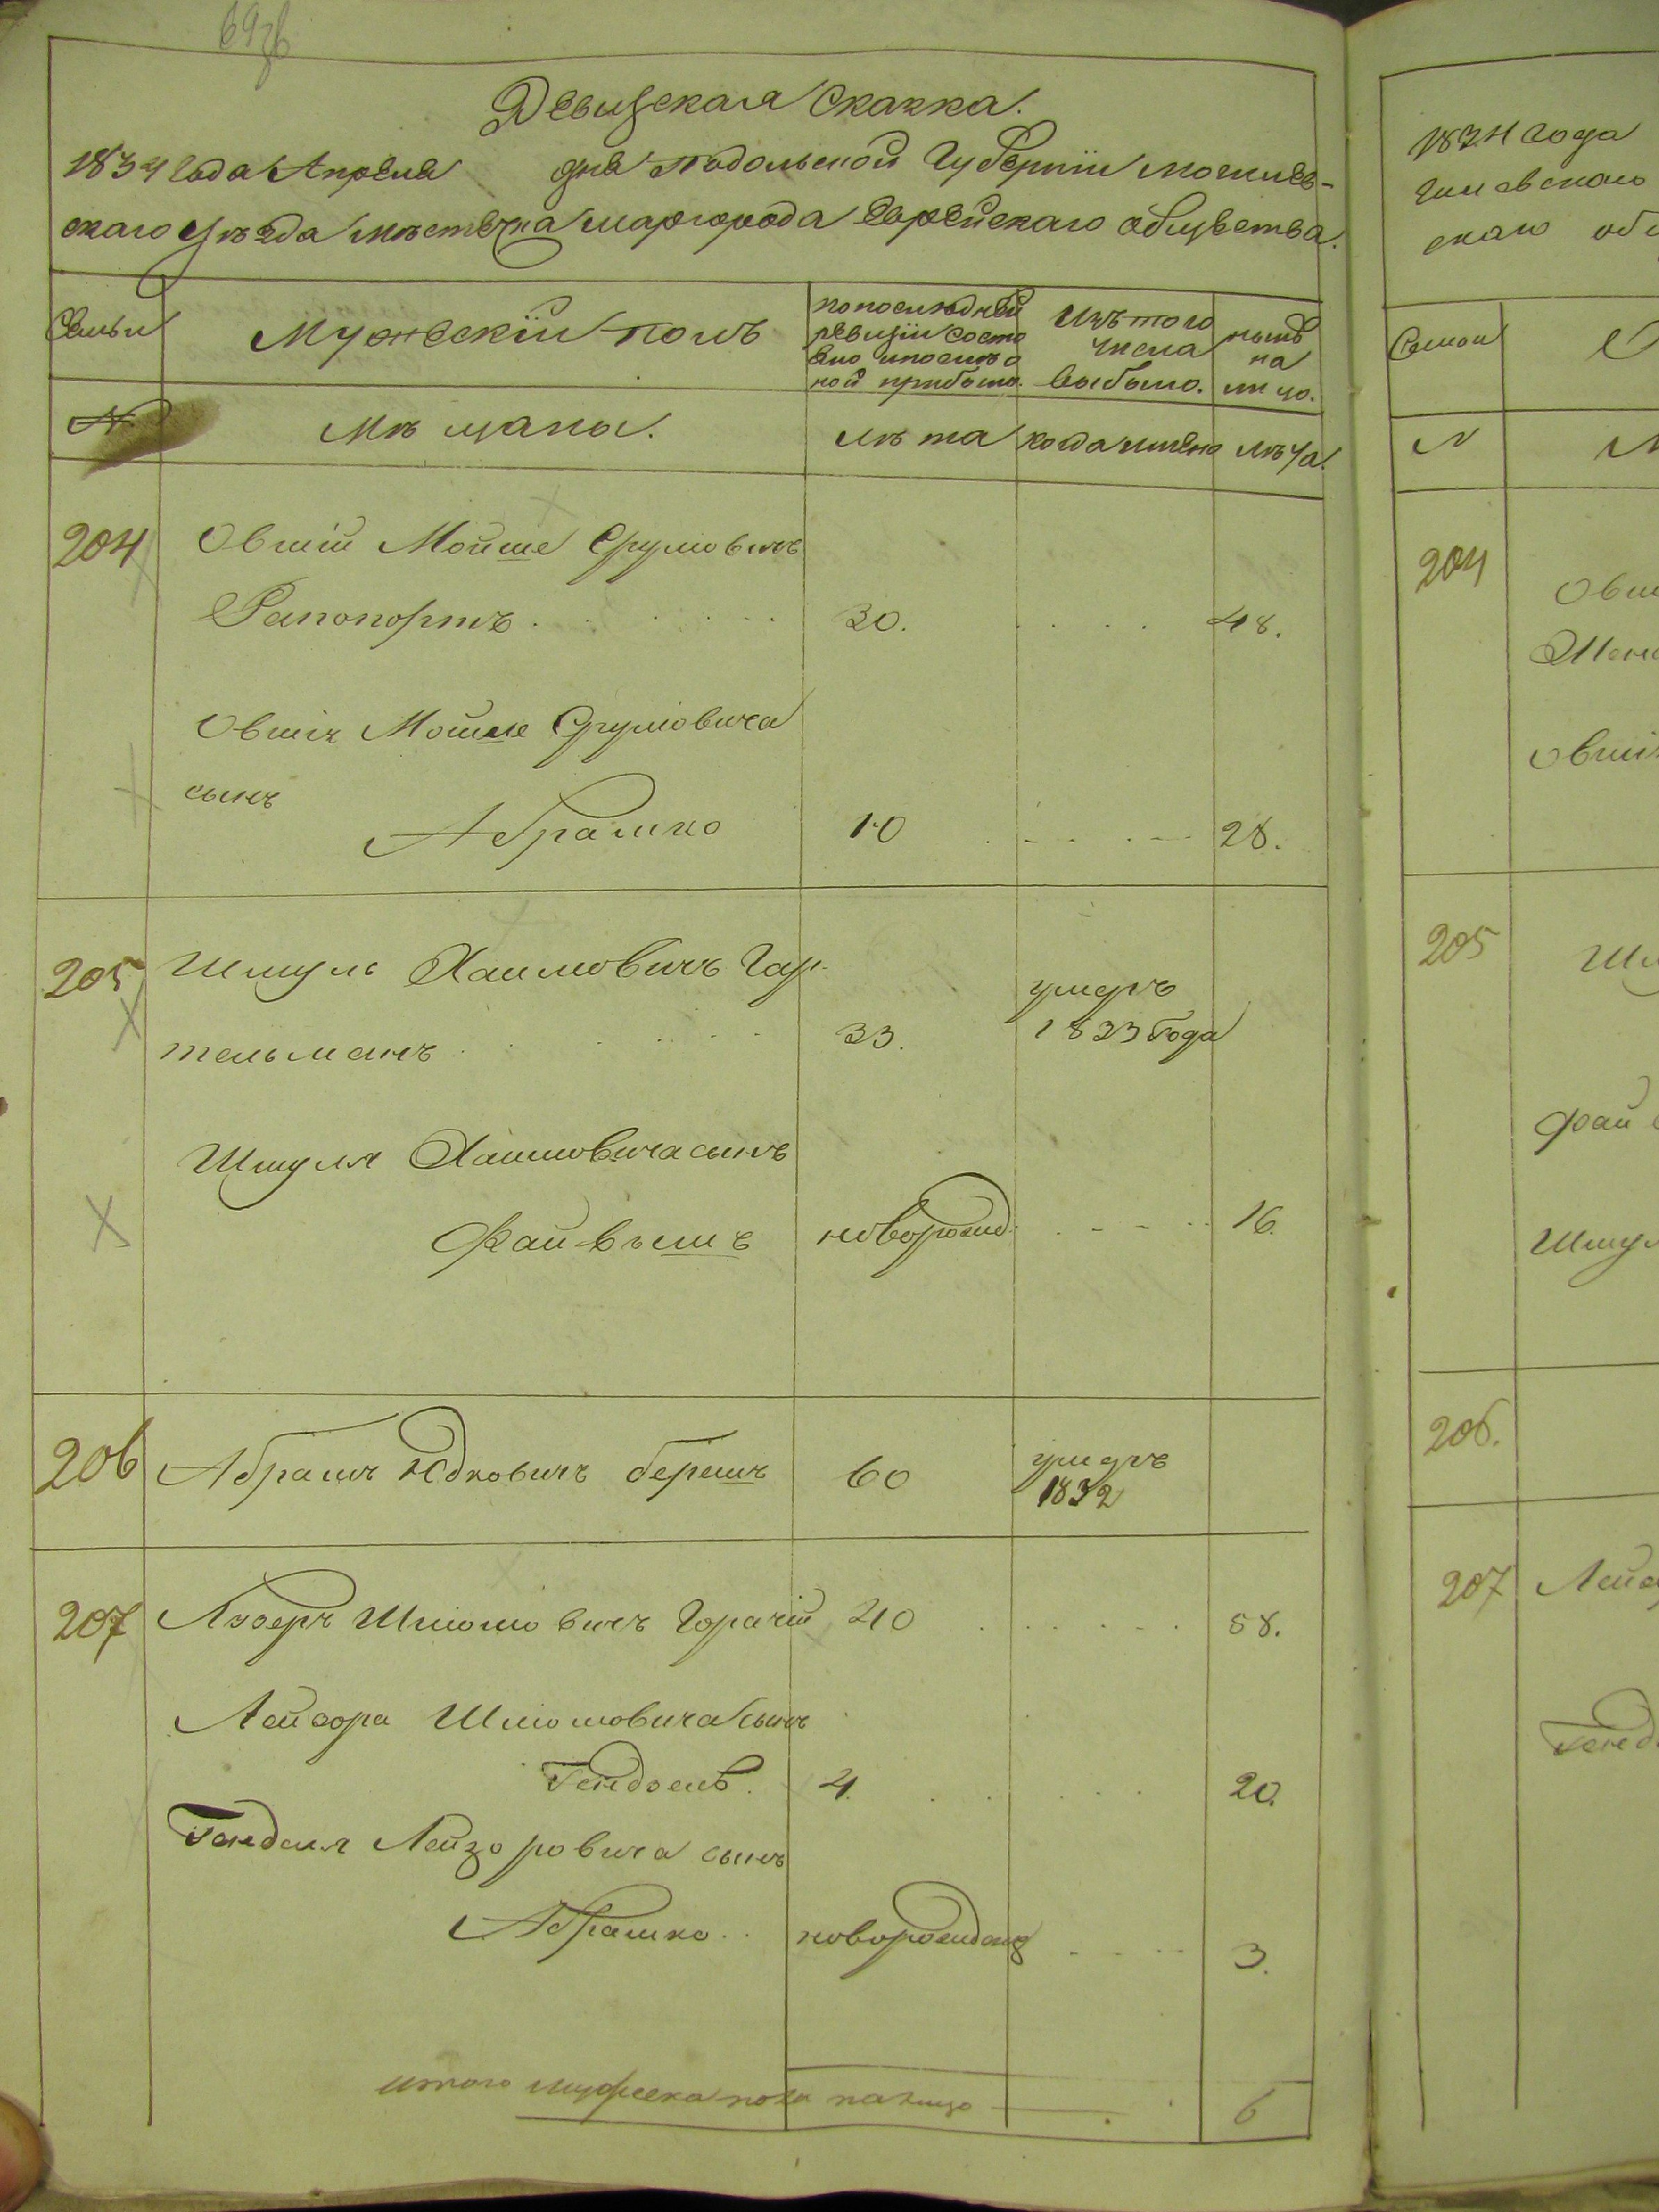 Ревизская Сказка.
1834 года Апреля дня Подольской Губернiи Могилев-
скаго уѣзда мѣстечка Шаргорода Еврейскаго общества.
Семьи
Мужескiй полъ
по последней
ревизiи состо
яло и после о
ной прибыло.
Изъ того
числа
выбыло.
нынѣ
на
лицо.
N
Мѣщаны.
Лѣта
когда имено
лѣта.
204
Овшiй Мойше Срулiовичъ
Рапопортъ
30.
48.
Овшiя Мойше Срулiовича
сынъ
Абрашко
10
28.
205
Шмуль Хаимовичъ Гар-
тельманъ
33.
умеръ
1833 Года
Шмуля Хаимовича сынъ
Файвышъ
новорожд.
16.
206
Абрамъ Юдковичъ берешъ
60
умеръ
1832
207
Лейзеръ Шліомовичъ Горачiй
40
58.
Лейзора Шліомовича сынъ
Гендзель.
4.
20.
Гендзля Лейзоровича сынъ
Абрашко
новорожденъ
3.
итого мужеска пола на лицо
6
1834 года
скаго
Семьи
N
204
Овш
Овшi
205
Шм
Фай
Шмул
206.
207
Лейз
Генд